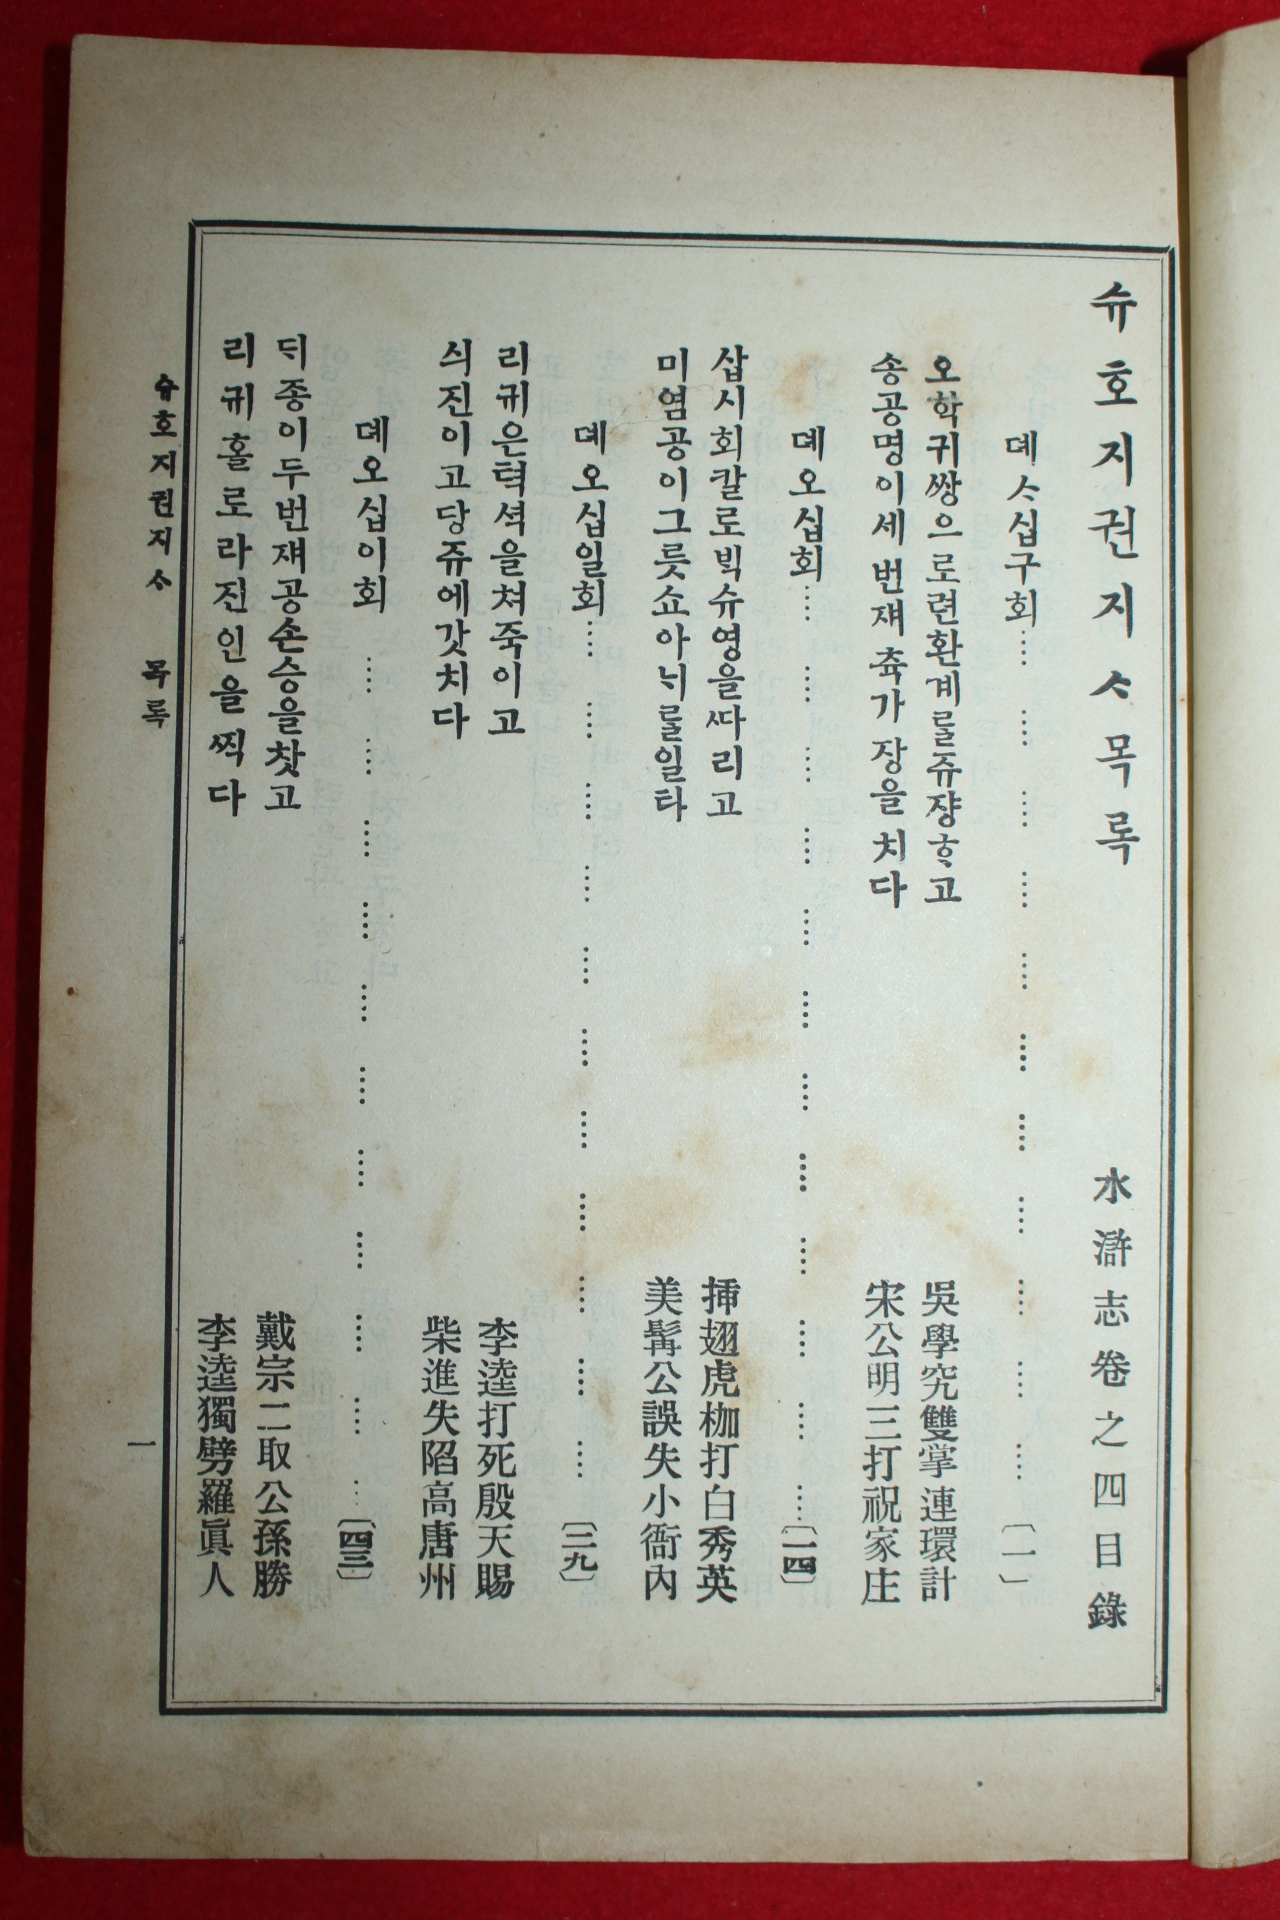 슈호지권지ᄉᆞ목록 水滸志卷之四目錄
뎨ᄉᆞ십구회 〔一〕
오학귀쌍으로련환계를쥬쟝ᄒᆞ고 吳學究雙掌連環計
송공명이세번재츅가장을치다 宋公明三打祝家庄
뎨오십회 〔一四〕
삽시회칼로빅슈영을ᄯᅡ리고 揷翅虎枷打白秀英
미염공이그릇쇼아ᄂᆡ를일타 美髯公誤失小衙內
뎨오십일회 〔二九〕
리귀은텩셕을쳐죽이고 李逵打死殷天賜
싀진이고당쥬에갓치다 柴進失陷高唐州
뎨오십이회 〔四三〕
ᄃᆡ종이두번재공손승을찻고 戴宗二取公孫勝
리귀홀로라진인을ᄶᅵᆨ다 李逵獨劈羅眞人
슈호지권지ᄉᆞ 목록
一